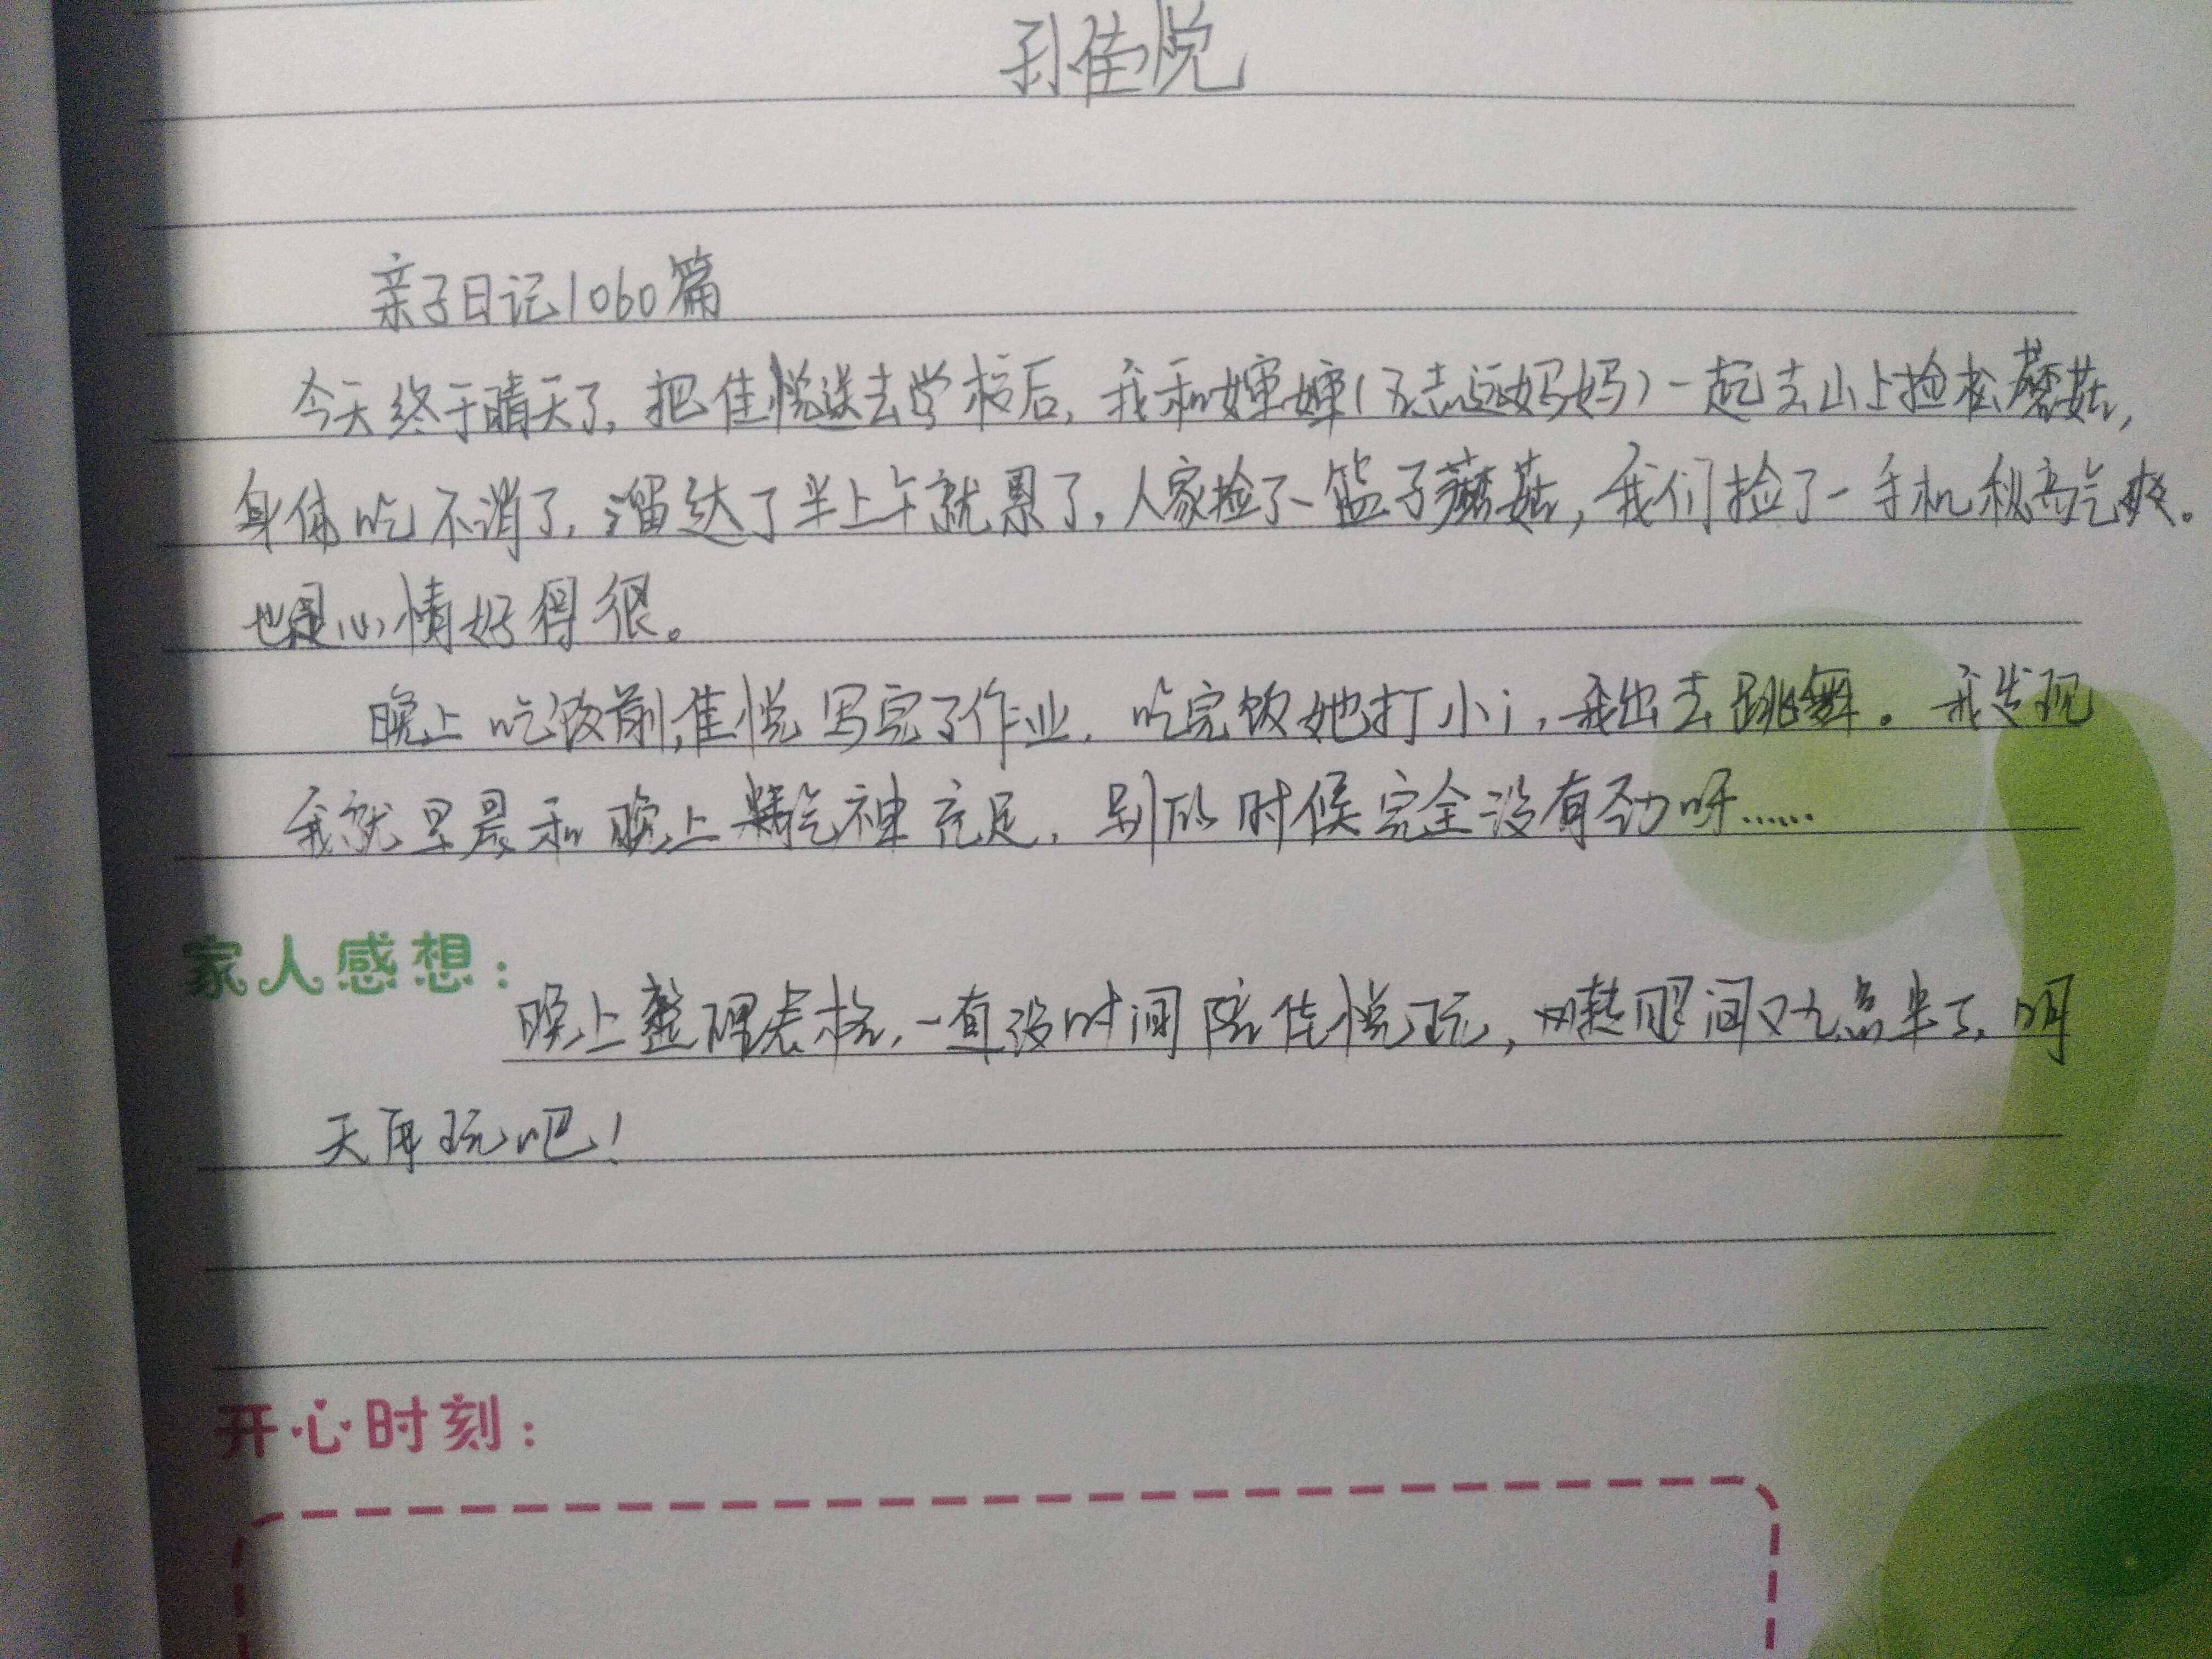 孙佳悦
亲子日记1060篇
今天终于晴天了,把佳悦送去学校后,我和婶婶(志远妈妈)一起去山上捡松蘑菇,
身体吃不消了,溜达了半上午就累了,人家捡了一篮子蘑菇,我们捡了一手机秋高气爽。
也是心情好得很。
晚上吃饭前,佳悦写完了作业,吃完饭她打小i,我出去跳舞。我发现
我就早晨和晚上精气神充足,别的时候完全没有劲呀……
家人感想:
晚上整理表格,一直没时间陪佳悦玩,转眼间又九点半了,明
天再玩吧!
开心时刻: